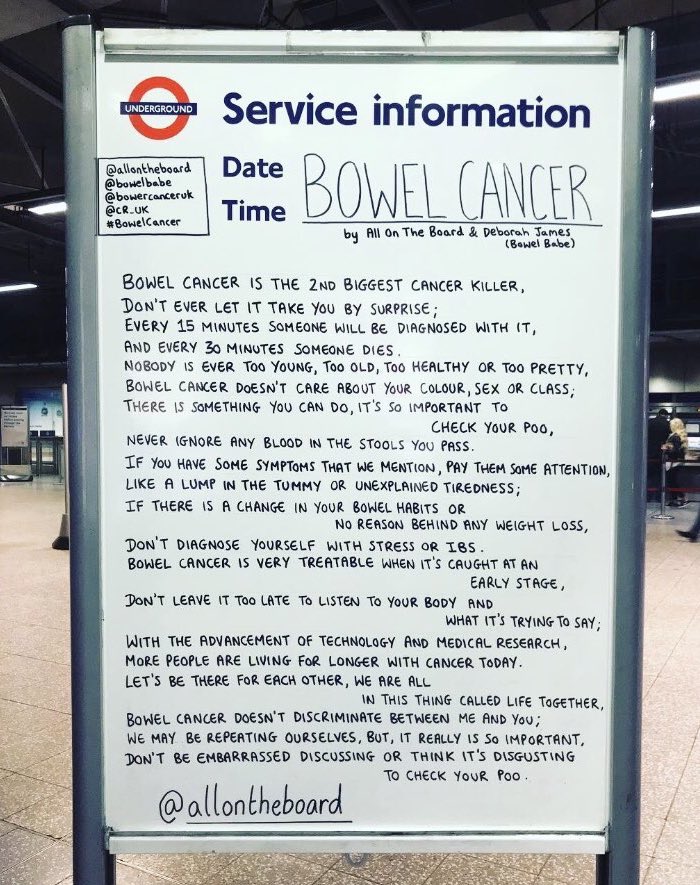 UNDERGROUND
Service information
Date
Time
@allontheboard
@bowelbabe
@bowercanceruk
@CR_UK
#BowelCancer
BOWEL CANCER
by All On The Board & Deborah James
(Bowel Babe)
BOWEL CANCER IS THE 2ND BIGGEST CANCER KILLER,
DON'T EVER LET IT TAKE YOU BY SURPRISE;
EVERY 15 MINUTES SOMEONE WILL BE DIAGNOSED WITH IT,
AND EVERY 30 MINUTES SOMEONE DIES.
NOBODY IS EVER TOO YOUNG, TOO OLD, TOO HEALTHY OR TOO PRETTY,
BOWEL CANCER DOESN'T CARE ABOUT YOUR COLOUR, SEX OR CLASS;
THERE IS SOMETHING YOU CAN DO, IT'S SO IMPORTANT TO
CHECK YOUR POO,
NEVER IGNORE ANY BLOOD IN THE STOOLS YOU PASS.
IF YOU HAVE SOME SYMPTOMS THAT WE MENTION, PAY THEM SOME ATTENTION,
LIKE A LUMP IN THE TUMMY OR UNEXPLAINED TIREDNESS;
IF THERE IS A CHANGE IN YOUR BOWEL HABITS OR
NO REASON BEHIND ANY WEIGHT LOSS,
DON'T DIAGNOSE YOURSELF WITH STRESS OR IBS.
BOWEL CANCER IS VERY TREATABLE WHEN IT'S CAUGHT AT AN
EARLY STAGE,
DON'T LEAVE IT TOO LATE TO LISTEN TO YOUR BODY AND
WHAT IT'S TRYING TO SAY;
WITH THE ADVANCEMENT OF TECHNOLOGY AND MEDICAL RESEARCH,
MORE PEOPLE ARE LIVING FOR LONGER WITH CANCER TODAY.
LET'S BE THERE FOR EACH OTHER, WE ARE ALL
IN THIS THING CALLED LIFE TOGETHER,
BOWEL CANCER DOESN'T DISCRIMINATE BETWEEN ME AND YOU;
WE MAY BE REPEATING OURSELVES, BUT, IT REALLY IS SO IMPORTANT,
DON'T BE EMBARRASSED DISCUSSING OR THINK IT'S DISGUSTING
TO CHECK YOUR POO.
@allontheboard